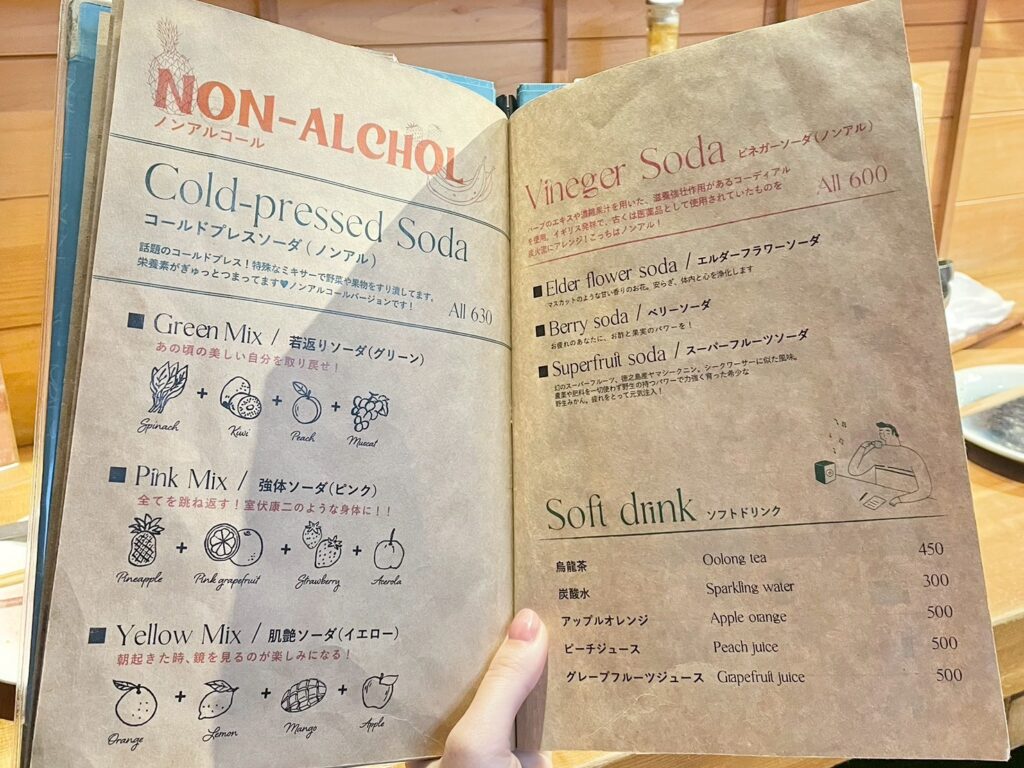 NON-ALCHOL
ノンアルコール
Cold-pressed Soda
コールドプレスソーダ(ノンアル)
話題のコールドプレス!特殊なミキサーで野菜や果物をすり潰してます。
栄養素がぎゅっとつまってます♥ノンアルコールバージョンです!
All 630
■ Green Mix / 若返りソーダ(グリーン)
あの頃の美しい自分を取り戻せ!
Spinach + Kiwi + Peach + Muscat
■ Pink Mix / 強体ソーダ(ピンク)
全てを跳ね返す!室伏康二のような身体に!!
Pineapple + Pink grapefruit + Strawberry + Acerola
■ Yellow Mix / 肌艶ソーダ(イエロー)
朝起きた時、鏡を見るのが楽しみになる!
Orange + Lemon + Mango + Apple
Vineger Soda ビネガーソーダ(ノンアル)
ハーブのエキスや濃縮果汁を用いた、滋養強壮作用があるコーディアル
を使用。イギリス発祥で、古くは医薬品として使用されていたものを
炭火流にアレンジ!こっちはノンアル!
All 600
■ Elder flower soda / エルダーフラワーソーダ
マスカットのような甘い香りのお花。安らぎ、体内と心を浄化します
■ Berry soda / ベリーソーダ
お疲れのあなたに、お酢と果実のパワーを!
■ Superfruit soda / スーパーフルーツソーダ
幻のスーパーフルーツ、徳之島産ヤマシークニン。シークワーサーに似た風味。
農薬や肥料を一切使わず野生の持つパワーで力強く育った希少な
野生みかん。疲れをとって元気注入!
Soft drink ソフトドリンク
烏龍茶 Oolong tea 450
炭酸水 Sparkling water 300
アップルオレンジ Apple orange 500
ピーチジュース Peach juice 500
グレープフルーツジュース Grapefruit juice 500